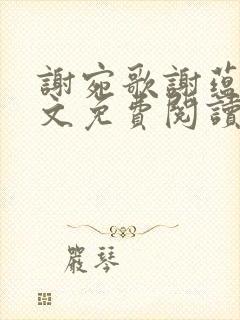 謝宛歌謝蕴
文免費閱讀
嚴琴